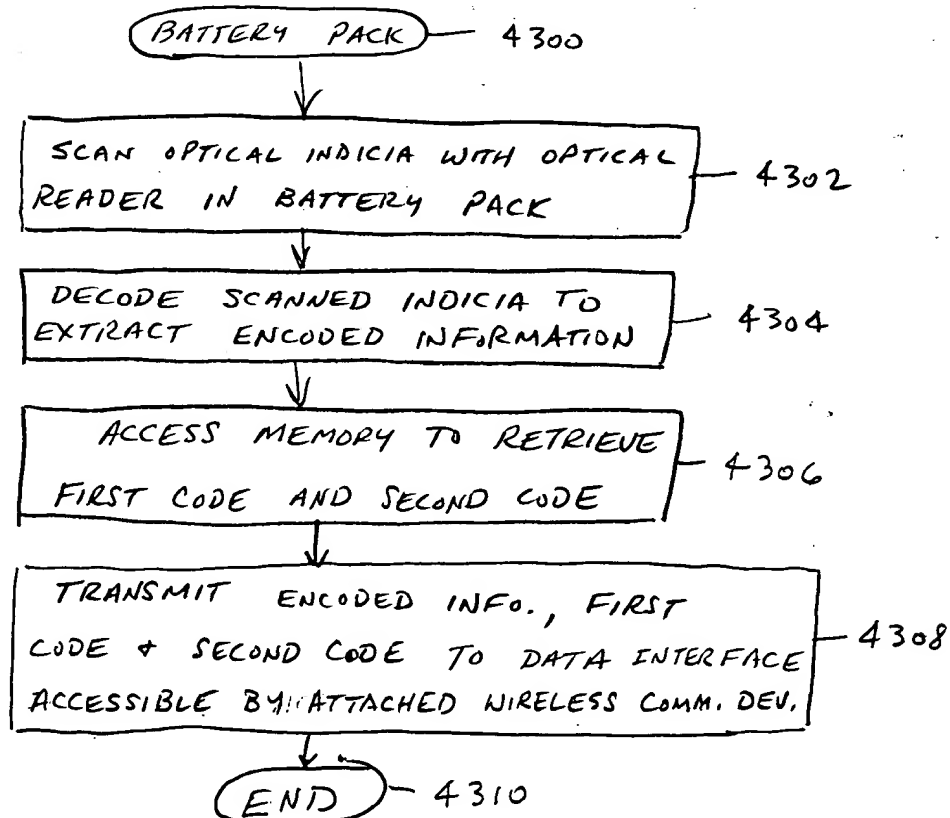 BATTERY PACK 4300
SCAN OPTICAL INDICIA WITH OPTICAL
READER IN BATTERY PACK
4302
DECODE SCANNED INDICIA TO
EXTRACT ENCODED INFORMATION
4304
ACCESS MEMORY TO RETRIEVE
FIRST CODE AND SECOND CODE
4306
TRANSMIT ENCODED INFO., FIRST
CODE & SECOND CODE TO DATA INTERFACE
ACCESSIBLE BY ATTACHED WIRELESS COMM. DEV.
4308
END 4310